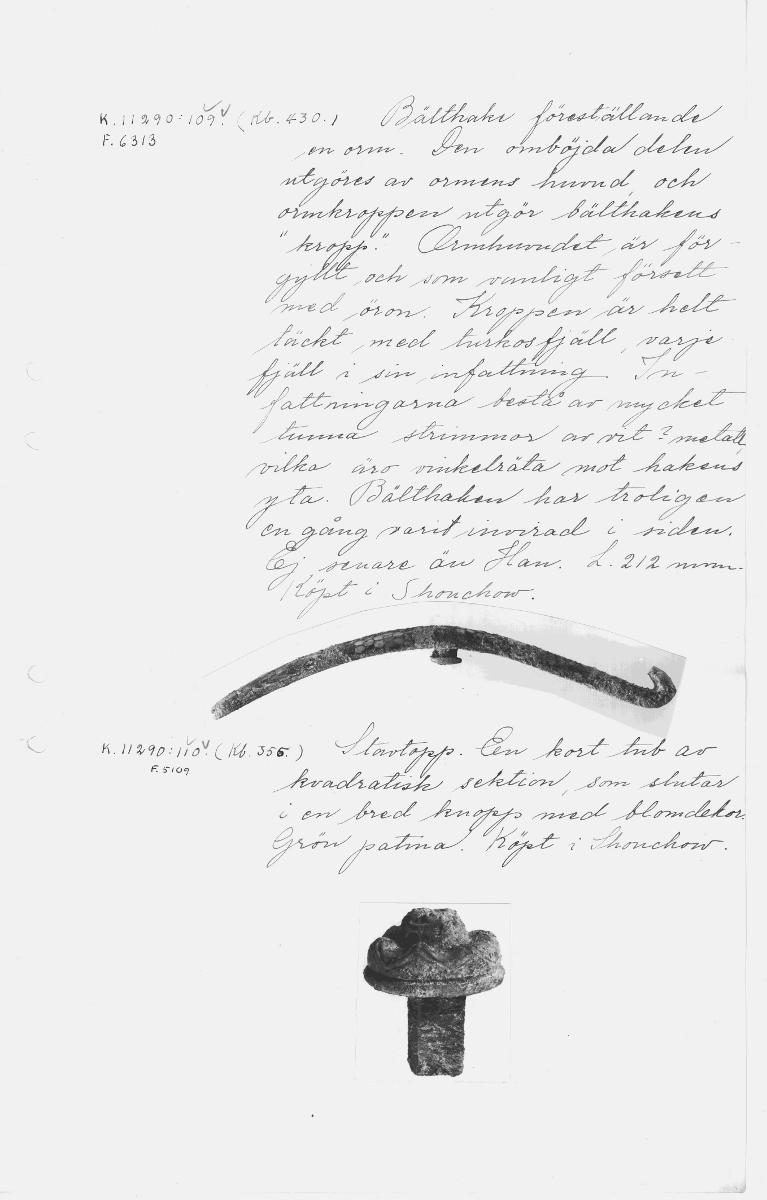 K.11290:109. (Kb. 430.) Bälthake föreställande
F.6313
en orm. Den omböjda delen
utgöres av ormens huvud, och
ormkroppen utgör bälthakens
"kropp." Ormhuvudet är för-
gyllt och som vanligt försett
med öron. Kroppen är helt
täckt med turkosfjäll, varje
fjäll i sin infattning. In-
fattningarna bestå av mycket
tunna strimmor av vit? metall,
vilka äro vinkelräta mot hakens
yta. Bälthaken har troligen
en gång varit invirad i siden.
Ej senare än Han. L. 212 mm.
Köpt i Shouchow.
K.11290:110. (Kb. 356.) Stavtopp. En kort tub av
F.5109
kvadratisk sektion, som slutar
i en bred knopp med blomdekor.
Grön patina. Köpt i Shouchow.